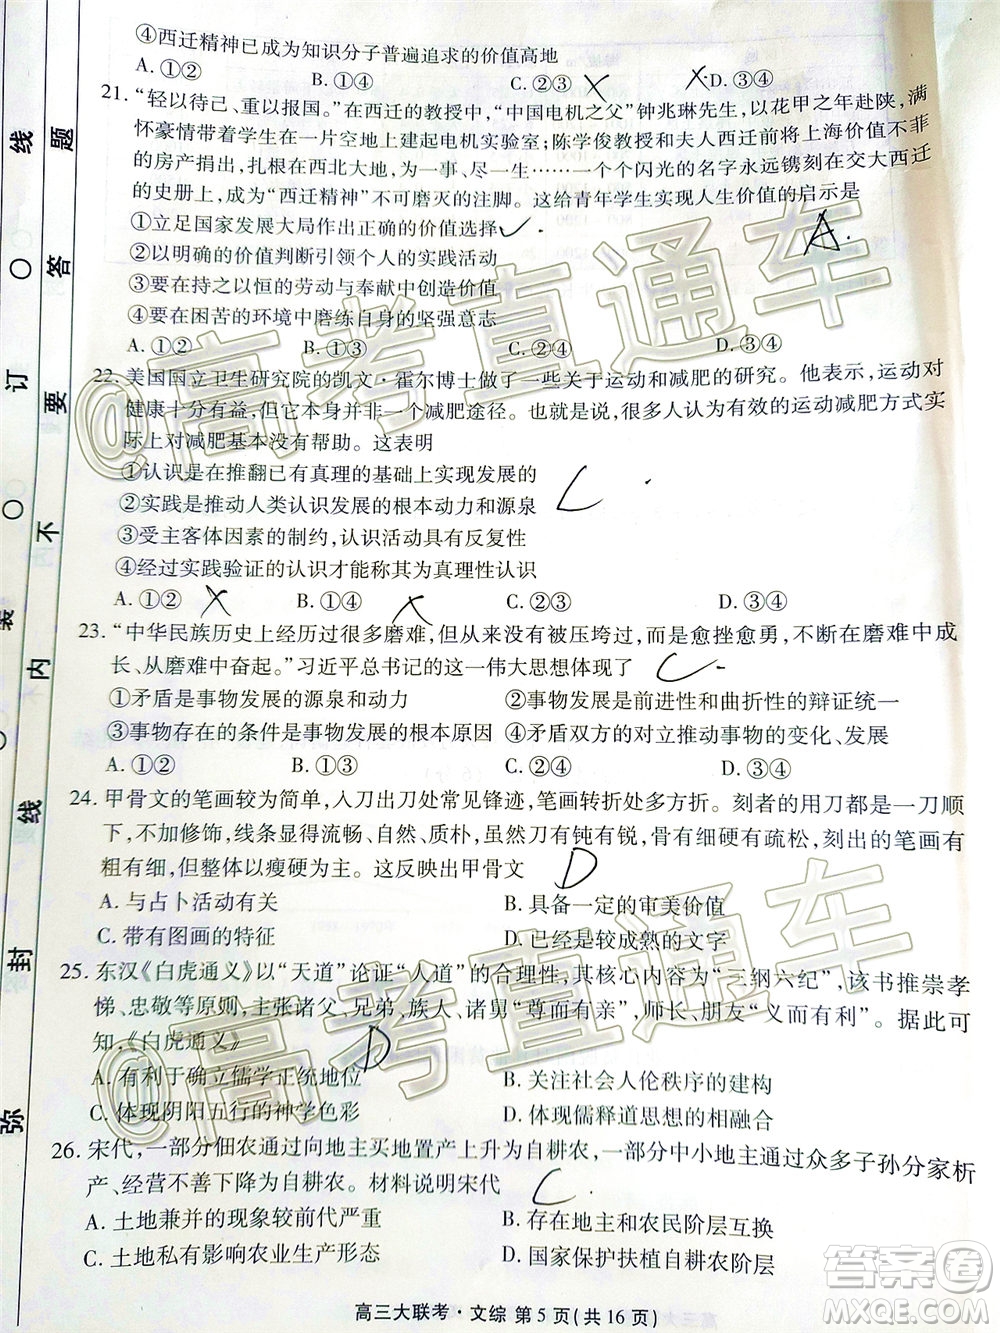 ④西迁精神已成为知识分子普遍追求的价值高地
A. ①② B. ①④ C. ②③ D. ③④
21. “轻以待己、重以报国。”在西迁的教授中，“中国电机之父”钟兆琳先生，以花甲之年赴陕，满
怀豪情带着学生在一片空地上建起电机实验室；陈学俊教授和夫人西迁前将上海价值不菲
的房产捐出，扎根在西北大地，为一事、尽一生……一个个闪光的名字永远镌刻在交大西迁
的史册上，成为“西迁精神”不可磨灭的注脚。这给青年学生实现人生价值的启示是
①立足国家发展大局作出正确的价值选择
②以正确的价值判断引领个人的实践活动
③要在持之以恒的劳动与奉献中创造价值
④要在困苦的环境中磨练自身的坚强意志
A. ①② B. ①③ C. ②④ D. ③④
A.
22. 美国国立卫生研究院的凯文·霍尔博士做了一些关于运动和减肥的研究。他表示，运动对
健康十分有益，但它本身并非一个减肥途径。也就是说，很多人认为有效的运动减肥方式实
际上对减肥基本没有帮助。这表明
①认识是在推翻已有真理的基础上实现发展的
②实践是推动人类认识发展的根本动力和源泉
③受主客体因素的制约，认识具有反复性
④经过实践验证的认识才能称其为真理性认识
A. ①② B. ①④ C. ②③ D. ③④
C
23. “中华民族历史上经历过很多磨难，但从来没有被压垮过，而是愈挫愈勇，不断在磨难中成
长、从磨难中奋起。”习近平总书记的这一伟大思想体现了
①矛盾是事物发展的源泉和动力 ②事物发展是前进性和曲折性的辩证统一
③事物存在的条件是事物发展的根本原因 ④矛盾双方的对立推动事物的变化、发展
A. ①② B. ①③ C. ②④ D. ③④
C
24. 甲骨文的笔画较为简单，入刀出刀处常见锋迹，笔画转折处多方折。刻者的用刀都是一刀顺
下，不加修饰，线条显得流畅、自然、质朴，虽然刀有钝有锐，骨有细硬有疏松，刻出的笔画有
粗有细，但整体以瘦硬为主。这反映出甲骨文
D
A. 与占卜活动有关 B. 具备一定的审美价值
C. 带有图画的特征 D. 已经是较成熟的文字
25. 东汉《白虎通义》以“天道”论证“人道”的合理性，其核心内容为“三纲六纪”，该书推崇孝
悌、忠敬等原则，主张诸父、兄弟、族人、诸舅“尊而有亲”，师长、朋友“义而有利”。据此可
知，《白虎通义》
D
A. 有利于确立儒学正统地位 B. 关注社会人伦秩序的建构
C. 体现阴阳五行的神学色彩 D. 体现儒释道思想的相融合
26. 宋代，一部分佃农通过向地主买地置产上升为自耕农，一部分中小地主通过众多子孙分家析
产、经营不善下降为自耕农。材料说明宋代
C
A. 土地兼并的现象较前代严重 B. 存在地主和农民阶层互换
C. 土地私有影响农业生产形态 D. 国家保护扶植自耕农阶层
高三大联考·文综 第 5 页（共 16 页）
弥 封 线 内 不 要 答 题
装 订 线
@高考直通车
@高考直通车
答案圈
MXQE.COM